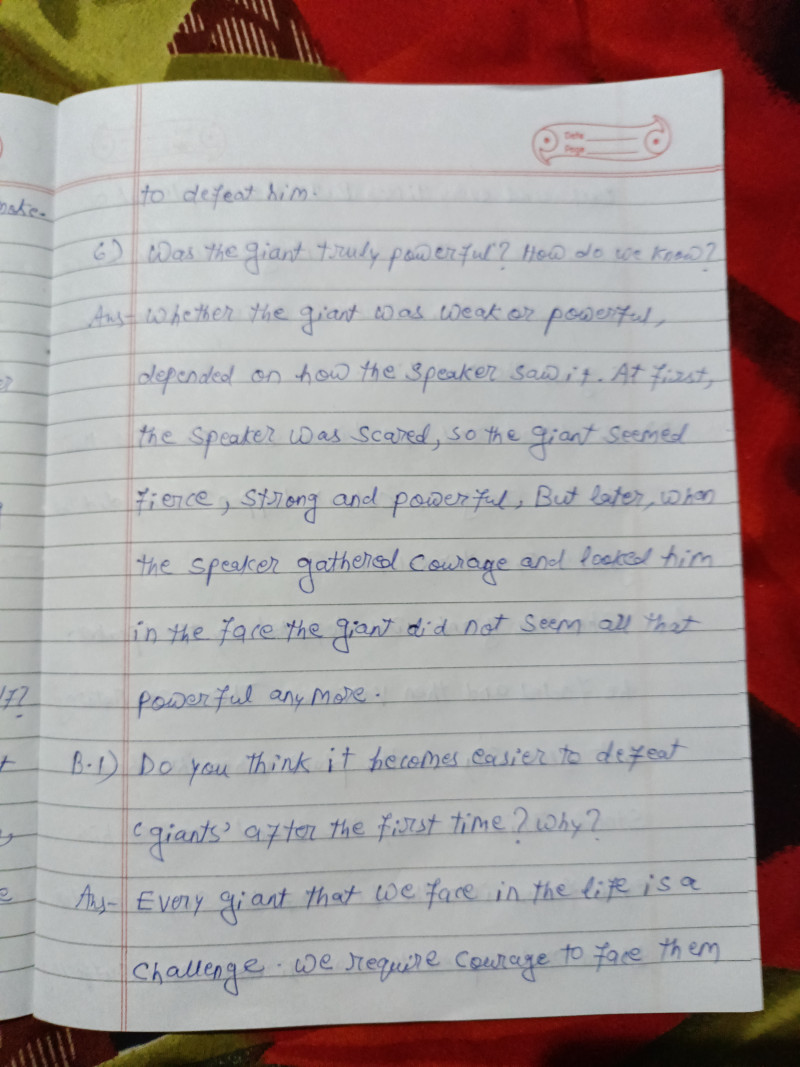 Date
Page
to defeat him.
6) Was the giant truly powerful? How do we know?
Ans- Whether the giant was weak or powerful,
depended on how the speaker saw it. At first,
the speaker was scared, so the giant seemed
fierce, strong and powerful, But later, when
the speaker gathered courage and looked him
in the face the giant did not seem all that
powerful any more.
B.1) Do you think it becomes easier to defeat
'giants' after the first time? Why?
Ans- Every giant that we face in the life is a
challenge. We require courage to face them